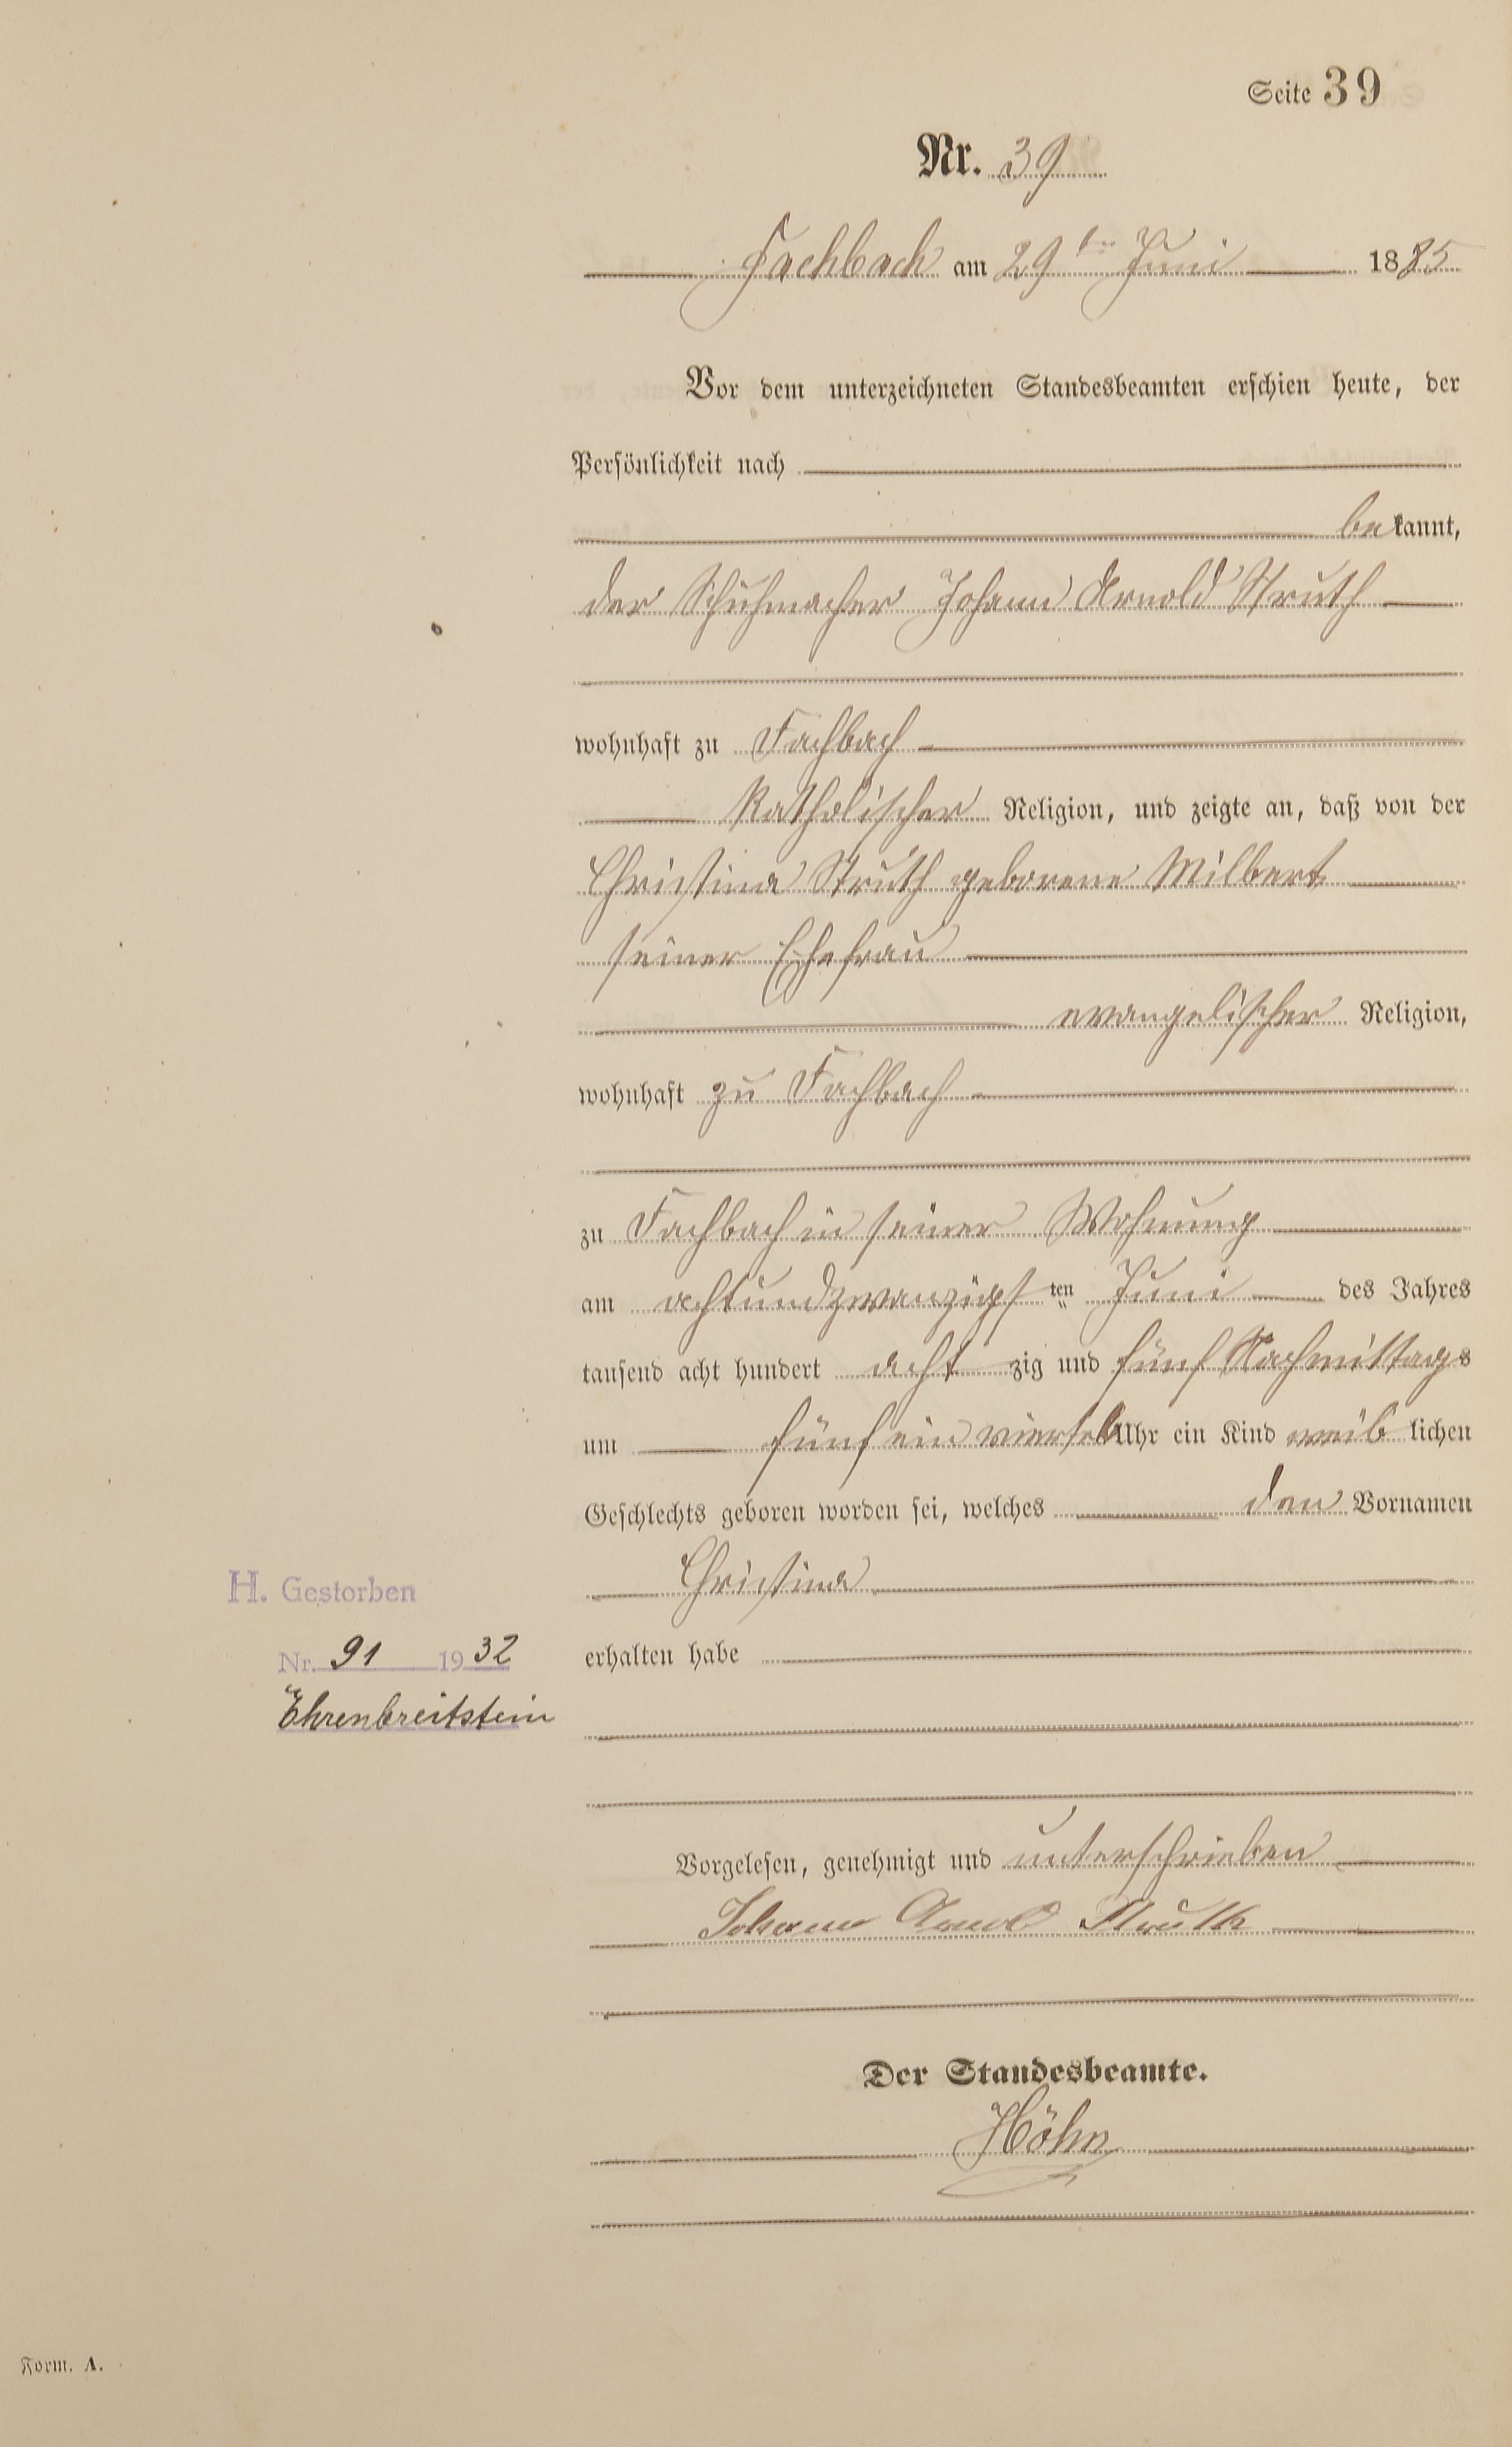 Seite 39
Nr. 39
Fachbach am 29ten Juni 1885
Vor dem unterzeichneten Standesbeamten erschien heute, der
Persönlichkeit nach
bekannt,
der Schuhmacher Johann Arnold Struth
wohnhaft zu Fachbach
katholischer Religion, und zeigte an, daß von der
Christina Struth geborene Milbert
seiner Ehefrau
evangelischer Religion,
wohnhaft zu Fachbach
zu Fachbach in seiner Wohnung
am achtundzwanzigsten Juni des Jahres
tausend acht hundert acht zig und fünf Nachmittags
um fünf ein viertel Uhr ein Kind weiblichen
Geschlechts geboren worden sei, welches den Vornamen
Christina
erhalten habe
H. Gestorben
Nr. 91 1932
Ehrenbreitstein
Vorgelesen, genehmigt und unterschrieben
Johann Arnold Struth
Der Standesbeamte.
Höhn
Form. A.